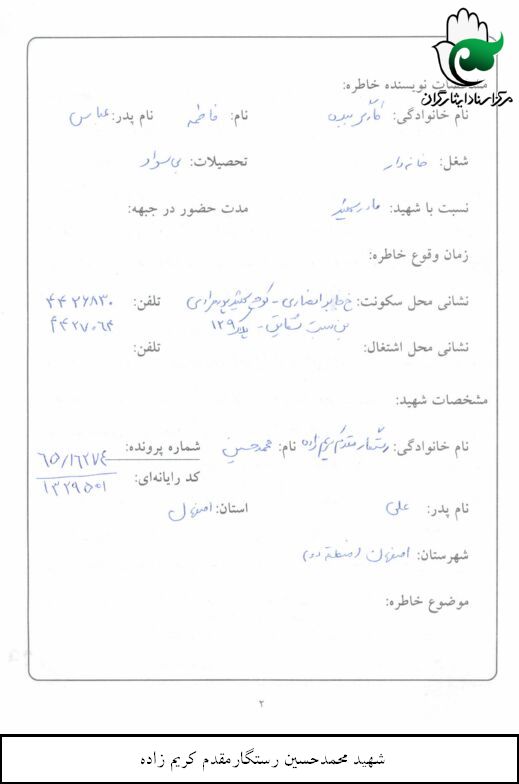 مرکز اسناد ایثارگران
مشخصات نویسنده خاطره:
نام خانوادگی: نام: فاطمه نام پدر: عباس
شغل: خانه دار تحصیلات: بی سواد
نسبت با شهید: مادر شهید مدت حضور در جبهه:
زمان وقوع خاطره:
نشانی محل سکونت: خ جابر انصاری - کوچه شهید تلفن: ۴۴۲۶۸۳۰
بن بست شقایق - پلاک ۱۲۹ ۴۴۲۷۰۶۴
نشانی محل اشتغال: تلفن:
مشخصات شهید:
نام خانوادگی: رستگار مقدم کریم زاده نام: محمدحسین شماره پرونده: ۶۵/۱۶۲۷۴
کد رایانه‌ای: ۱۳۲۹۵۰۱
نام پدر: علی استان: اصفهان
شهرستان: اصفهان (منطقه دو)
موضوع خاطره:
۲
شهید محمدحسین رستگارمقدم کریم زاده